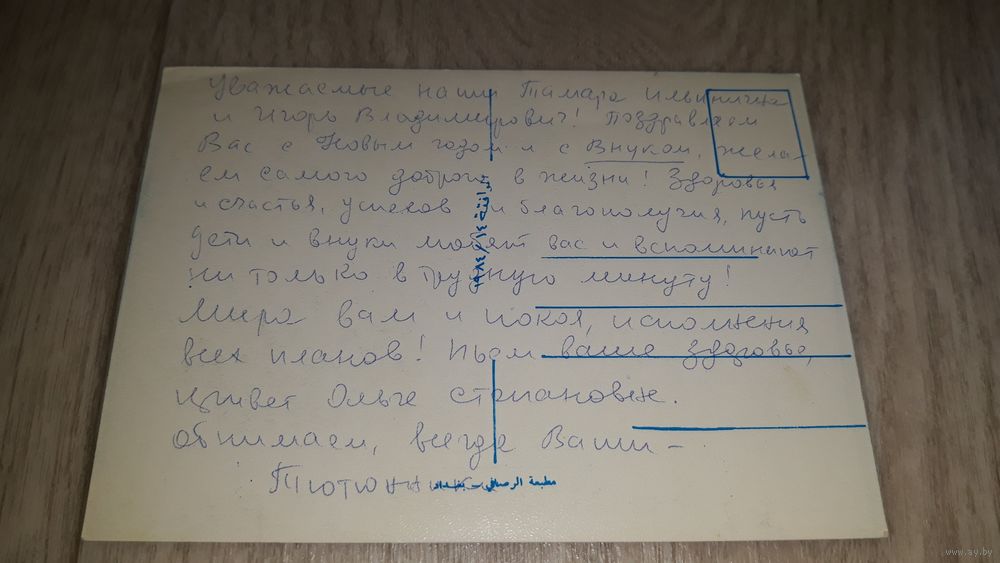 Уважаемые наши Тамара Ильинична
и Игорь Владимирович! Поздравляем
Вас с Новым годом и с Внуком, жела-
ем самого доброго в жизни! Здоровья
и счастья, успехов и благополучия, пусть
дети и внуки любят вас и вспоминают
ни только в трудную минуту!
Мира вам и покоя, исполнения
всех планов! Пьем ваше здоровье,
привет Ольге Степановне.
обнимаем, всегда Ваши —
مطبعة الرصافي – بغداد
www.ay.by